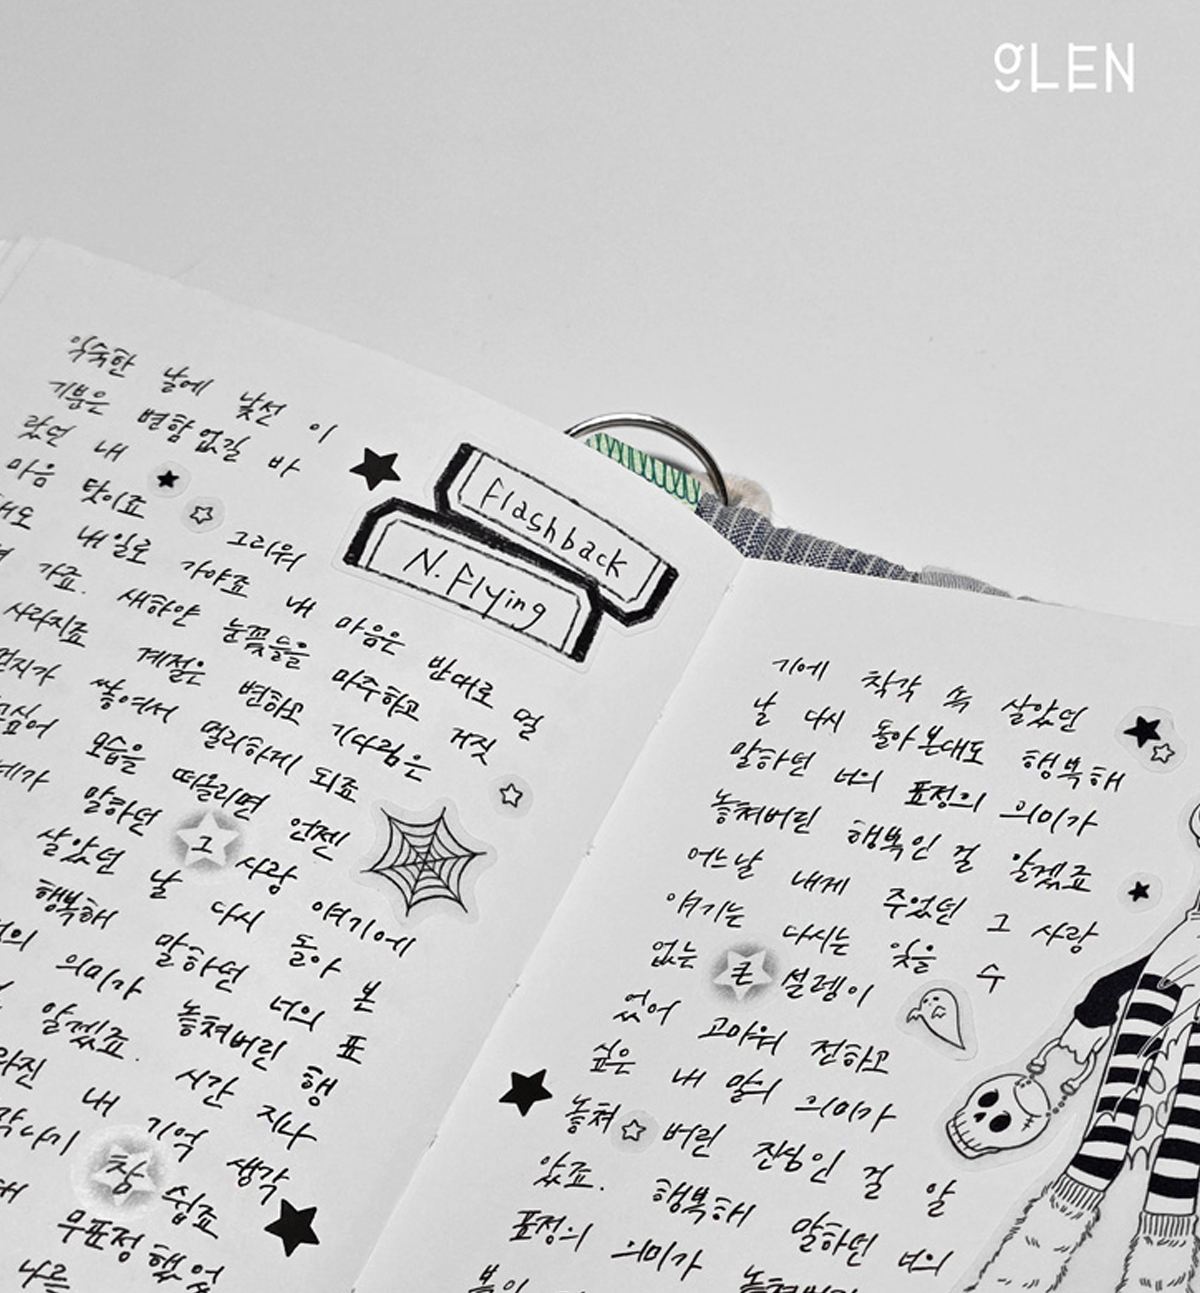 gLEN
Flashback
N.Flying
익숙한 날에 낯선 이
기분은 변함없길 바
랐던 내
마음 탓이죠 그리워
해도 내일로 가야죠 내 마음은 반대로 멀
가죠. 새하얀 눈꽃들을 마주하고 거짓
사라지죠 계절은 변하고 기다림은
먼지가 쌓여서 멀리하게 되죠
모습을 떠올리면 언젠
말하던 그 사랑 얘기에
살았던 날 다시 돌아 본
행복해 말하던 너의 표
의미가 놓쳐버린 행
알겠죠. 시간 지나
내 기억 생각
참 쉽죠
무표정했었
나를
기에 착각 속 살았던
날 다시 돌아본대도 행복해
말하던 너의 표정의 의미가
놓쳐버린 행복인 걸 알겠죠
어느날 내게 주었던 그 사랑
얘기는 다시는 잊을 수
없는 큰 설렘이
었어 고마워 전하고
싶은 내 말의 의미가
놓쳐 버린 진심인 걸 알
았죠. 행복해 말하던 너의
표정의 의미가 놓쳐버린